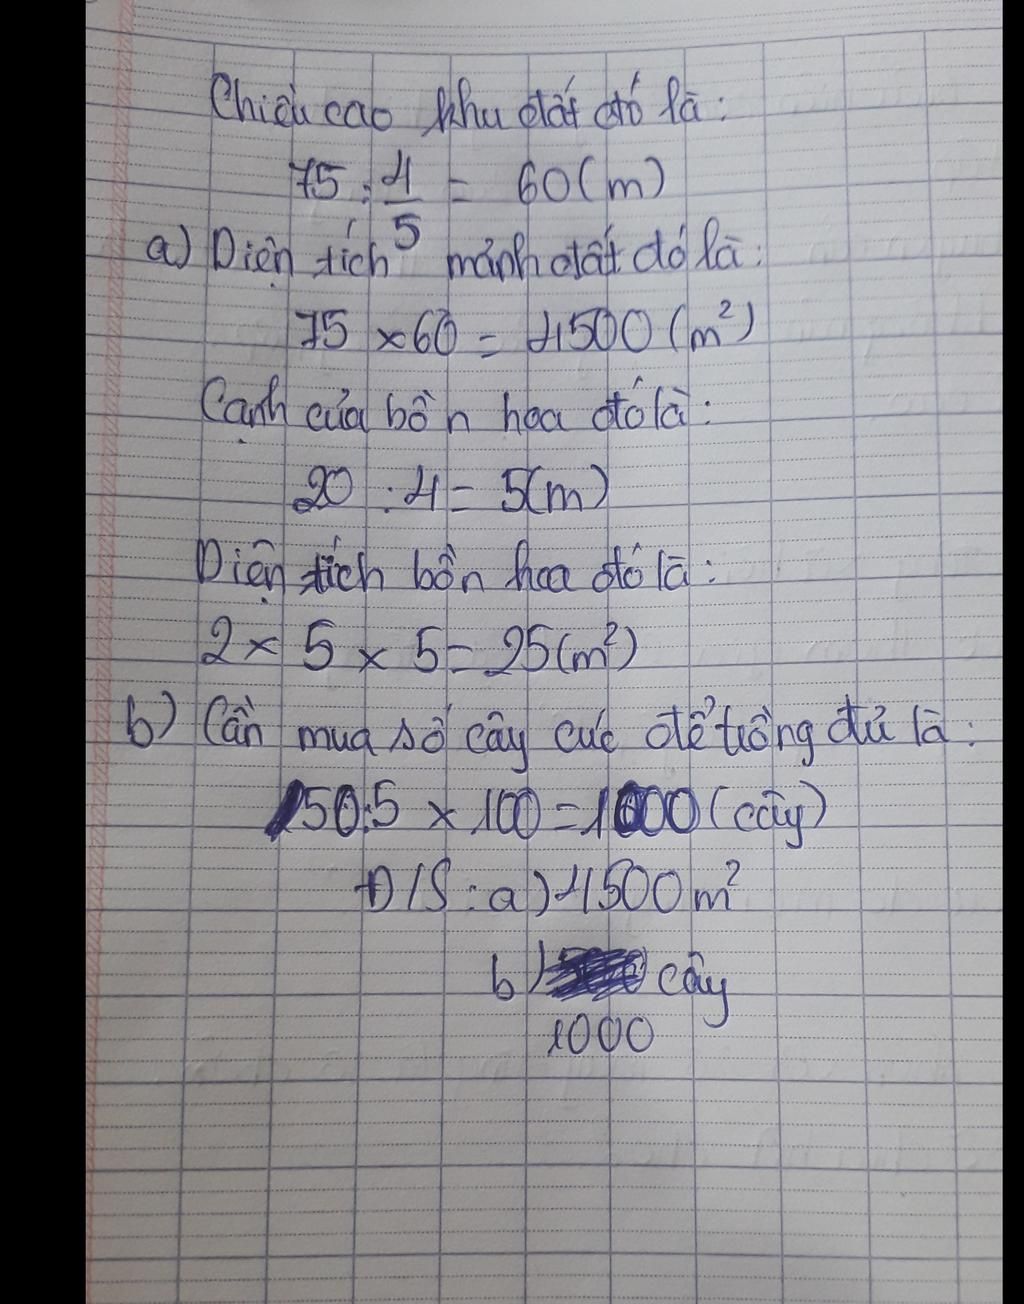 Chiều cao khu đất đó là:
75 : 4/5 = 60 (m)
a) Diện tích mảnh đất đó là:
75 × 60 = 4500 (m²)
Cạnh của bồn hoa đó là:
20 : 4 = 5 (m)
Diện tích bồn hoa đó là:
2 × 5 × 5 = 25 (m²)
b) Cần mua số cây cúc để trồng đủ là:
50:5 × 100 = 1000 (cây)
Đ/S : a) 4500 m²
b) cây
1000